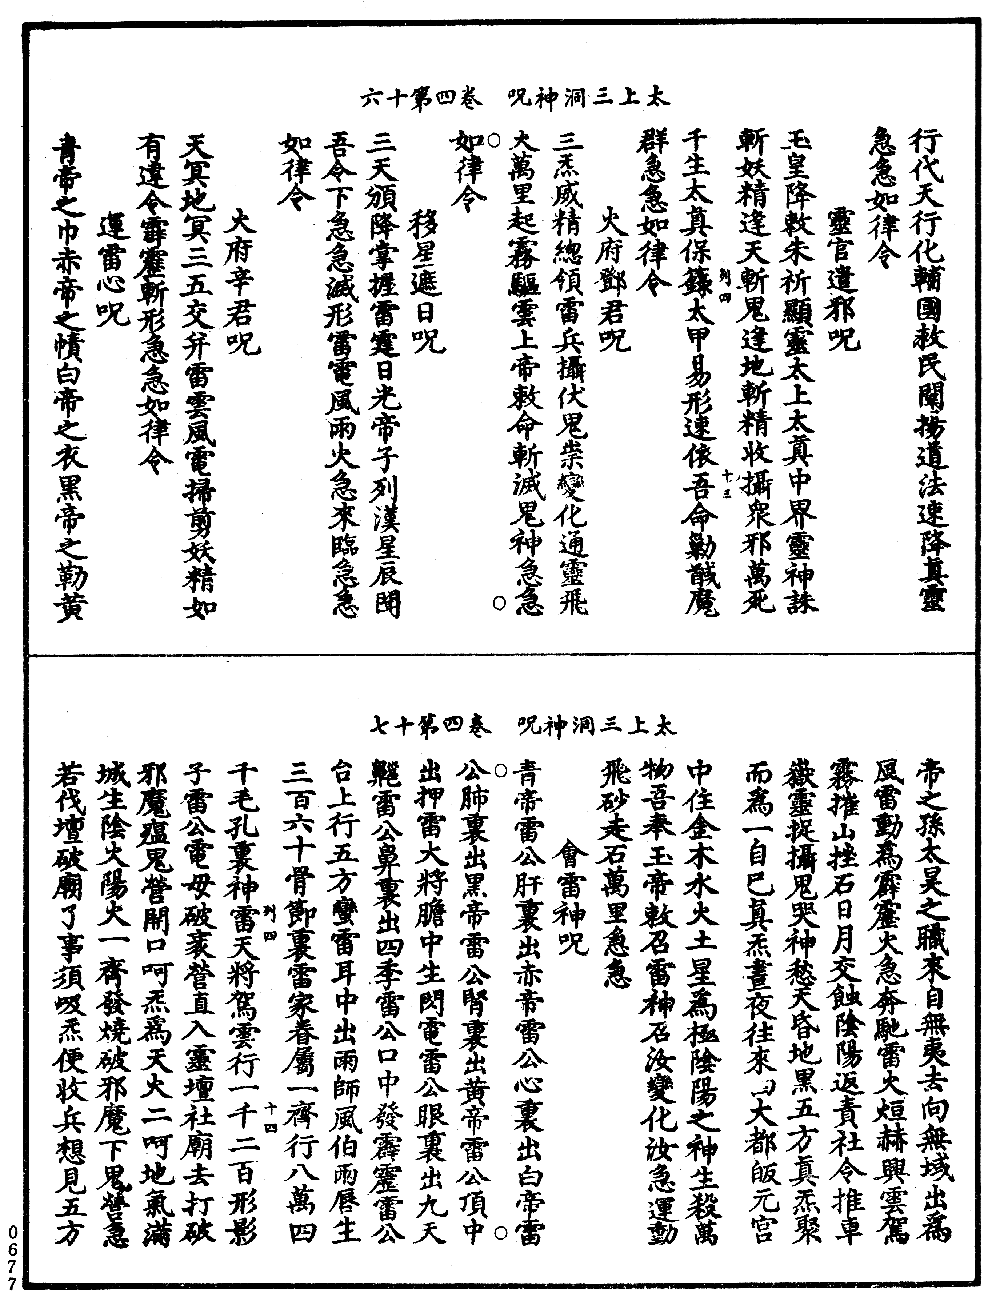 太上三洞神呪　卷四第十六
行代天行化輔國救民闡揚道法速降真靈
急急如律令
靈官遣邪呪
玉皇降敕朱祈顯靈太上太真中界靈神誅
斬妖精逢天斬鬼逢地斬精收攝衆邪萬死
列四　十三
千生太真保籙太甲易形速依吾命勦馘魔
群急急如律令
火府鄧君呪
三炁威精總領雷兵攝伏鬼祟變化通靈飛
火萬里起霧驅雲上帝敕命斬滅鬼神急急
如律令
移星遮日呪
三天頒降掌握雷霆日光帝子列漢星辰聞
吾令下急急滅形雷電風雨火急來臨急急
如律令
火府辛君呪
天冥地冥三五交并雷雲風電掃剪妖精如
有違令霹靂斬形急急如律令
運雷心呪
青帝之巾赤帝之幘白帝之衣黑帝之勒黃
太上三洞神呪　卷四第十七
帝之孫太昊之職來自無夷去向無域出為
風雷動為霹靂火急奔馳雷火烜赫興雲駕
霧摧山挫石日月交蝕陰陽返責社令推車
嶽靈捉攝鬼哭神愁天昏地黑五方真炁聚
而為一自巳真炁晝夜往來由大都皈元宮
中住金木水火土星為極陰陽之神生殺萬
物吾奉玉帝敕召雷神召汝變化汝急運動
飛砂走石萬里急急
會雷神呪
青帝雷公肝裏出赤帝雷公心裏出白帝雷
公肺裏出黑帝雷公腎裏出黃帝雷公頂中
出押雷大將膽中生閃電雷公眼裏出九天
雷公鼻裏出四季雷公口中發霹靂雷公
台上行五方蠻雷耳中出雨師風伯雨唇生
三百六十骨節裏雷家眷屬一齊行八萬四
千毛孔裏神雷天將駕雲行一千二百形影
列四　十四
子雷公電母破衺營直入靈壇社廟去打破
邪魔瘟鬼營開口呵炁為天火二呵地氣滿
城生陰火陽火一齊發燒破邪魔下鬼營急
若伐壇破廟了事須吸炁便收兵想見五方
0677